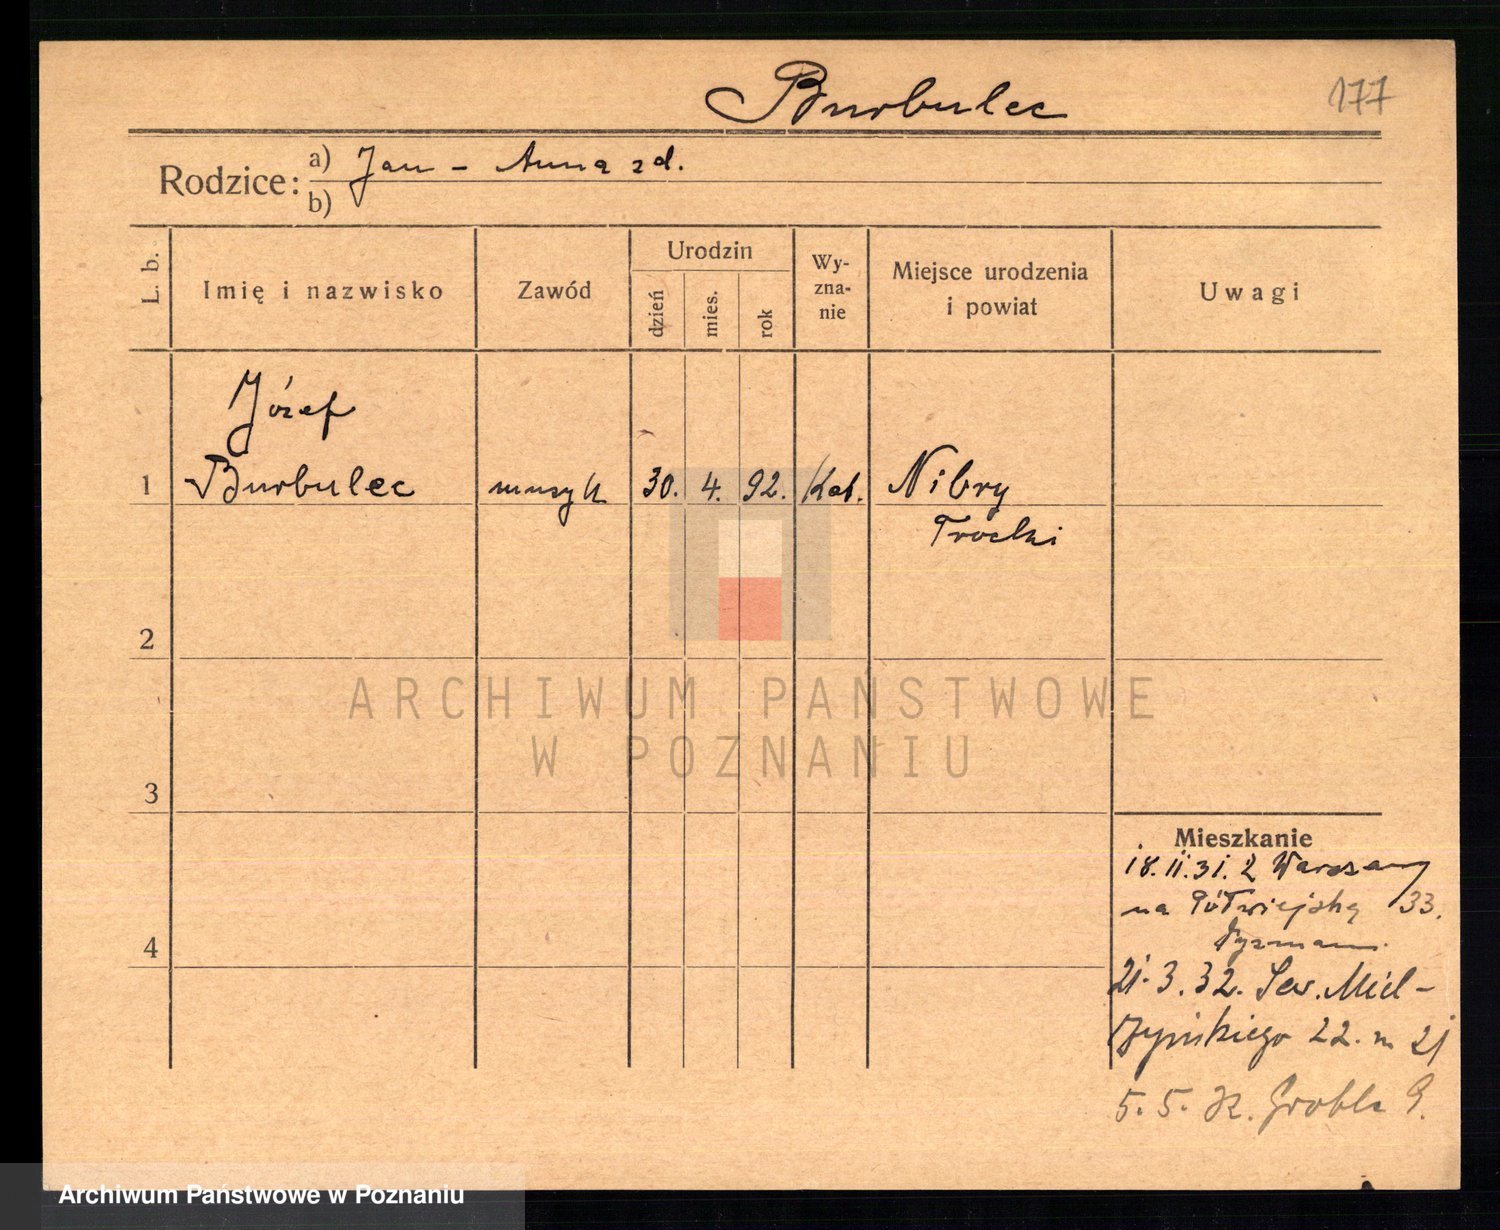 Burbulec
177
Rodzice:
a) Jan - Anna zd.
b)
L. b.
Imię i nazwisko
Zawód
Urodzin
dzień
mies.
rok
Wy-
zna-
nie
Miejsce urodzenia
i powiat
Uwagi
Józef
1 Burbulec muzyk 30. 4. 92. Kat. Nibry
Trocki
2
3
4
Mieszkanie
18.11.31. z Warszawy
na Półwiejską 33.
21.3.32. Sew. Miel-
żyńskiego 22. m 21
5.5.32. Grobla 9.
ARCHIWUM PAŃSTWOWE
W POZNANIU
Archiwum Państwowe w Poznaniu